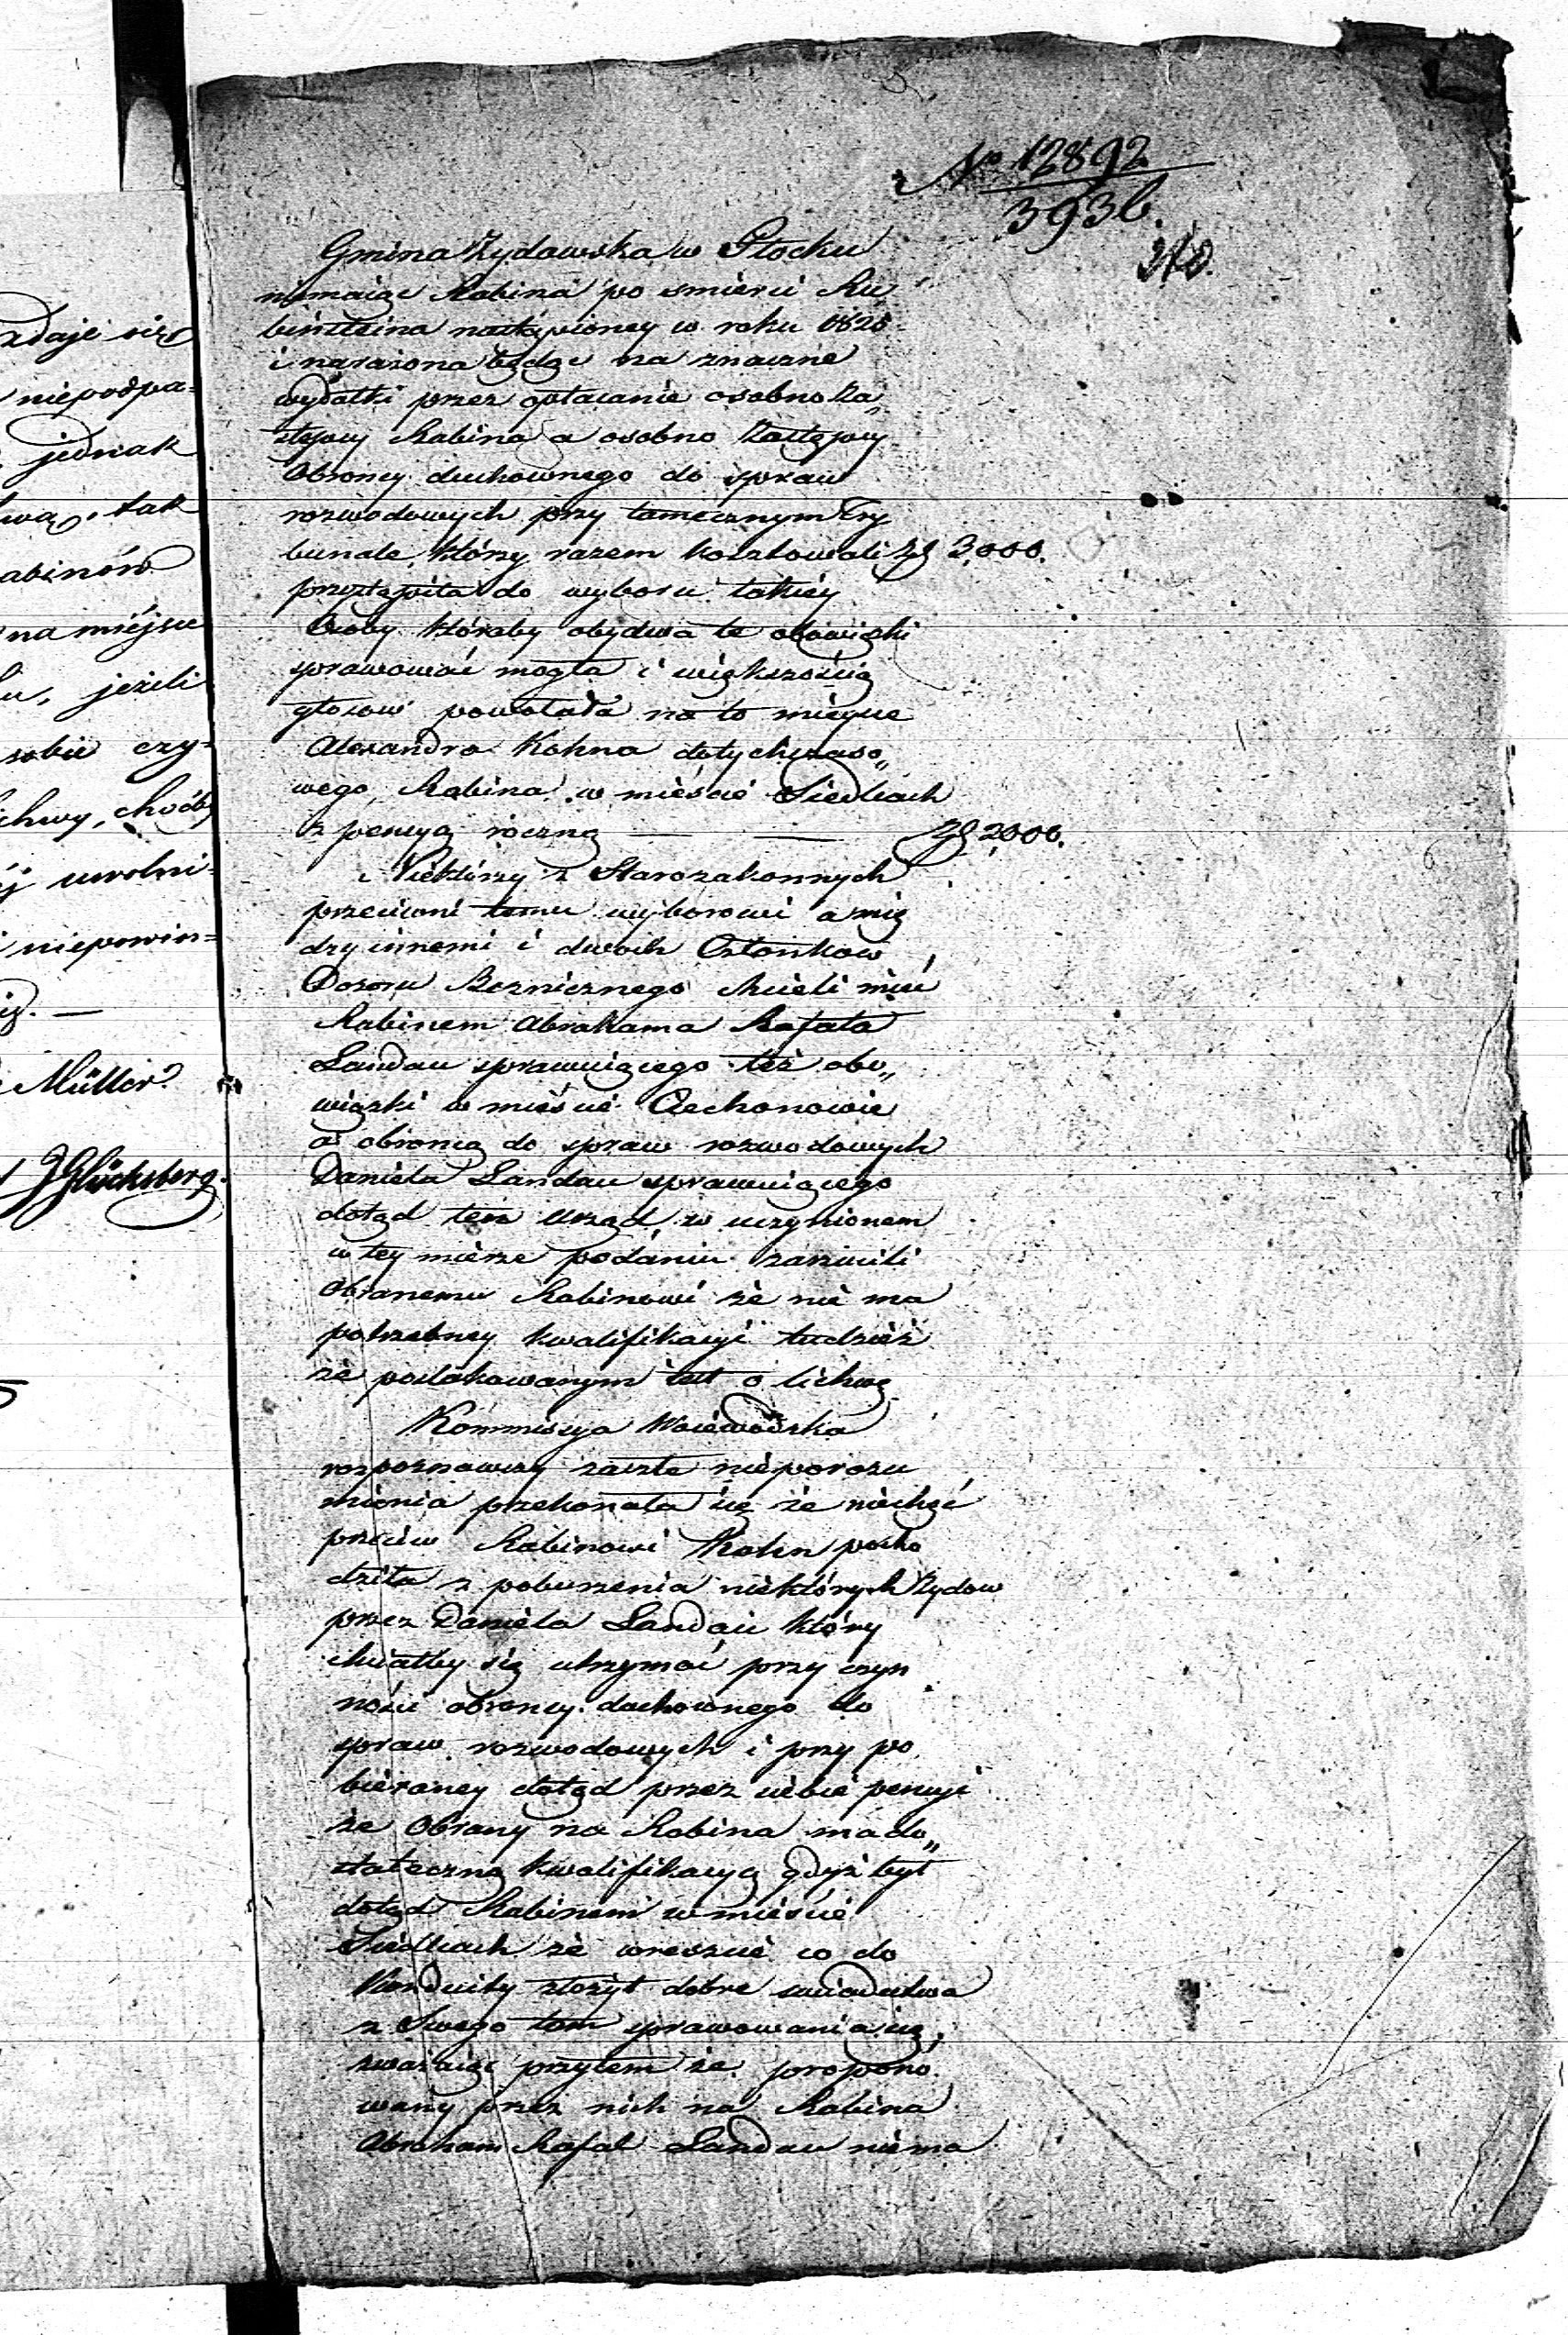 zdaje się
niepodpa=
jednak
tak
abinów
na miéjsce
jeżeli
sobie czy=
chwy, choćby
uwolni=
niepowin=
Müller
J Glücksberg
No 12892
3936.
Gmina Żydowska w Płocku
niemaiąc Rabina po śmierci Ru
binsteina nastąpioney w roku 1825
i narażona będąc na znaczne
wydatki przez opłacanie osobno Za„
stępcy Rabina a osobno Zastępcy
Obrońcy duchownego do spraw
rozwodowych przy tamecznym Try
bunale, którzy razem kosztowali Zł 3,000.
przystąpiła do wyboru takiéy
Osoby któraby obydwa te obowiązki
sprawować mogła i większością
głosów powołała na to mieysce
Alexandra Kohna dotychczaso„
wego Rabina w mieście Siedlcach
z pensyą roczną — — Zł 2000.
Niektórzy z Starozakonnych
przeciwni temu wyborowi a mię
dzy innemi i dwóch Członków
Dozoru Bożnicznego chcieli mieć
Rabinem Abrahama Rafała
Landau sprawuiącego też obo„
wiązki w mieście Ciechanowie
a obrońcą do spraw rozwodowych
Daniela Landau sprawuiącego
dotąd ten Urząd, w uczynionem
w tey mierze podaniu zarzucili
Obranemu Rabinowi że nie ma
potrzebney kwalifikacyi tudzież
że poszlakowanym iest o lichwę
Kommissya Woiewódzka
rozpoznawszy zaszłe nieporozu
mienia przekonała się że niechęć
przeciw Rabinowi Kohn pocho
dziła z poburzenia niektórych Żydów
przez Daniela Landau który
chciałby się utrzymać przy czyn
ności obrońcy duchownego do
spraw rozwodowych i przy po
bieraney dotąd przez siebie pensyi
że Obrany na Rabina ma do„
stateczną kwalifikacyą gdyż był
dotąd Rabinem w mieście
Siedlcach że wreszcie co do
Konduity złożył dobre świadectwa
z Swego tam sprawowania się,
zważaiąc przytem że propono
wany przez nich na Rabina
Abraham Rafał Landau niema